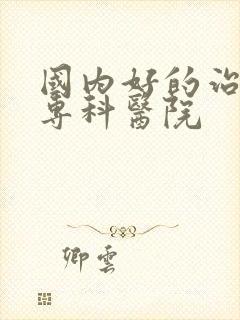 國內好的治
專科醫院
卿雲